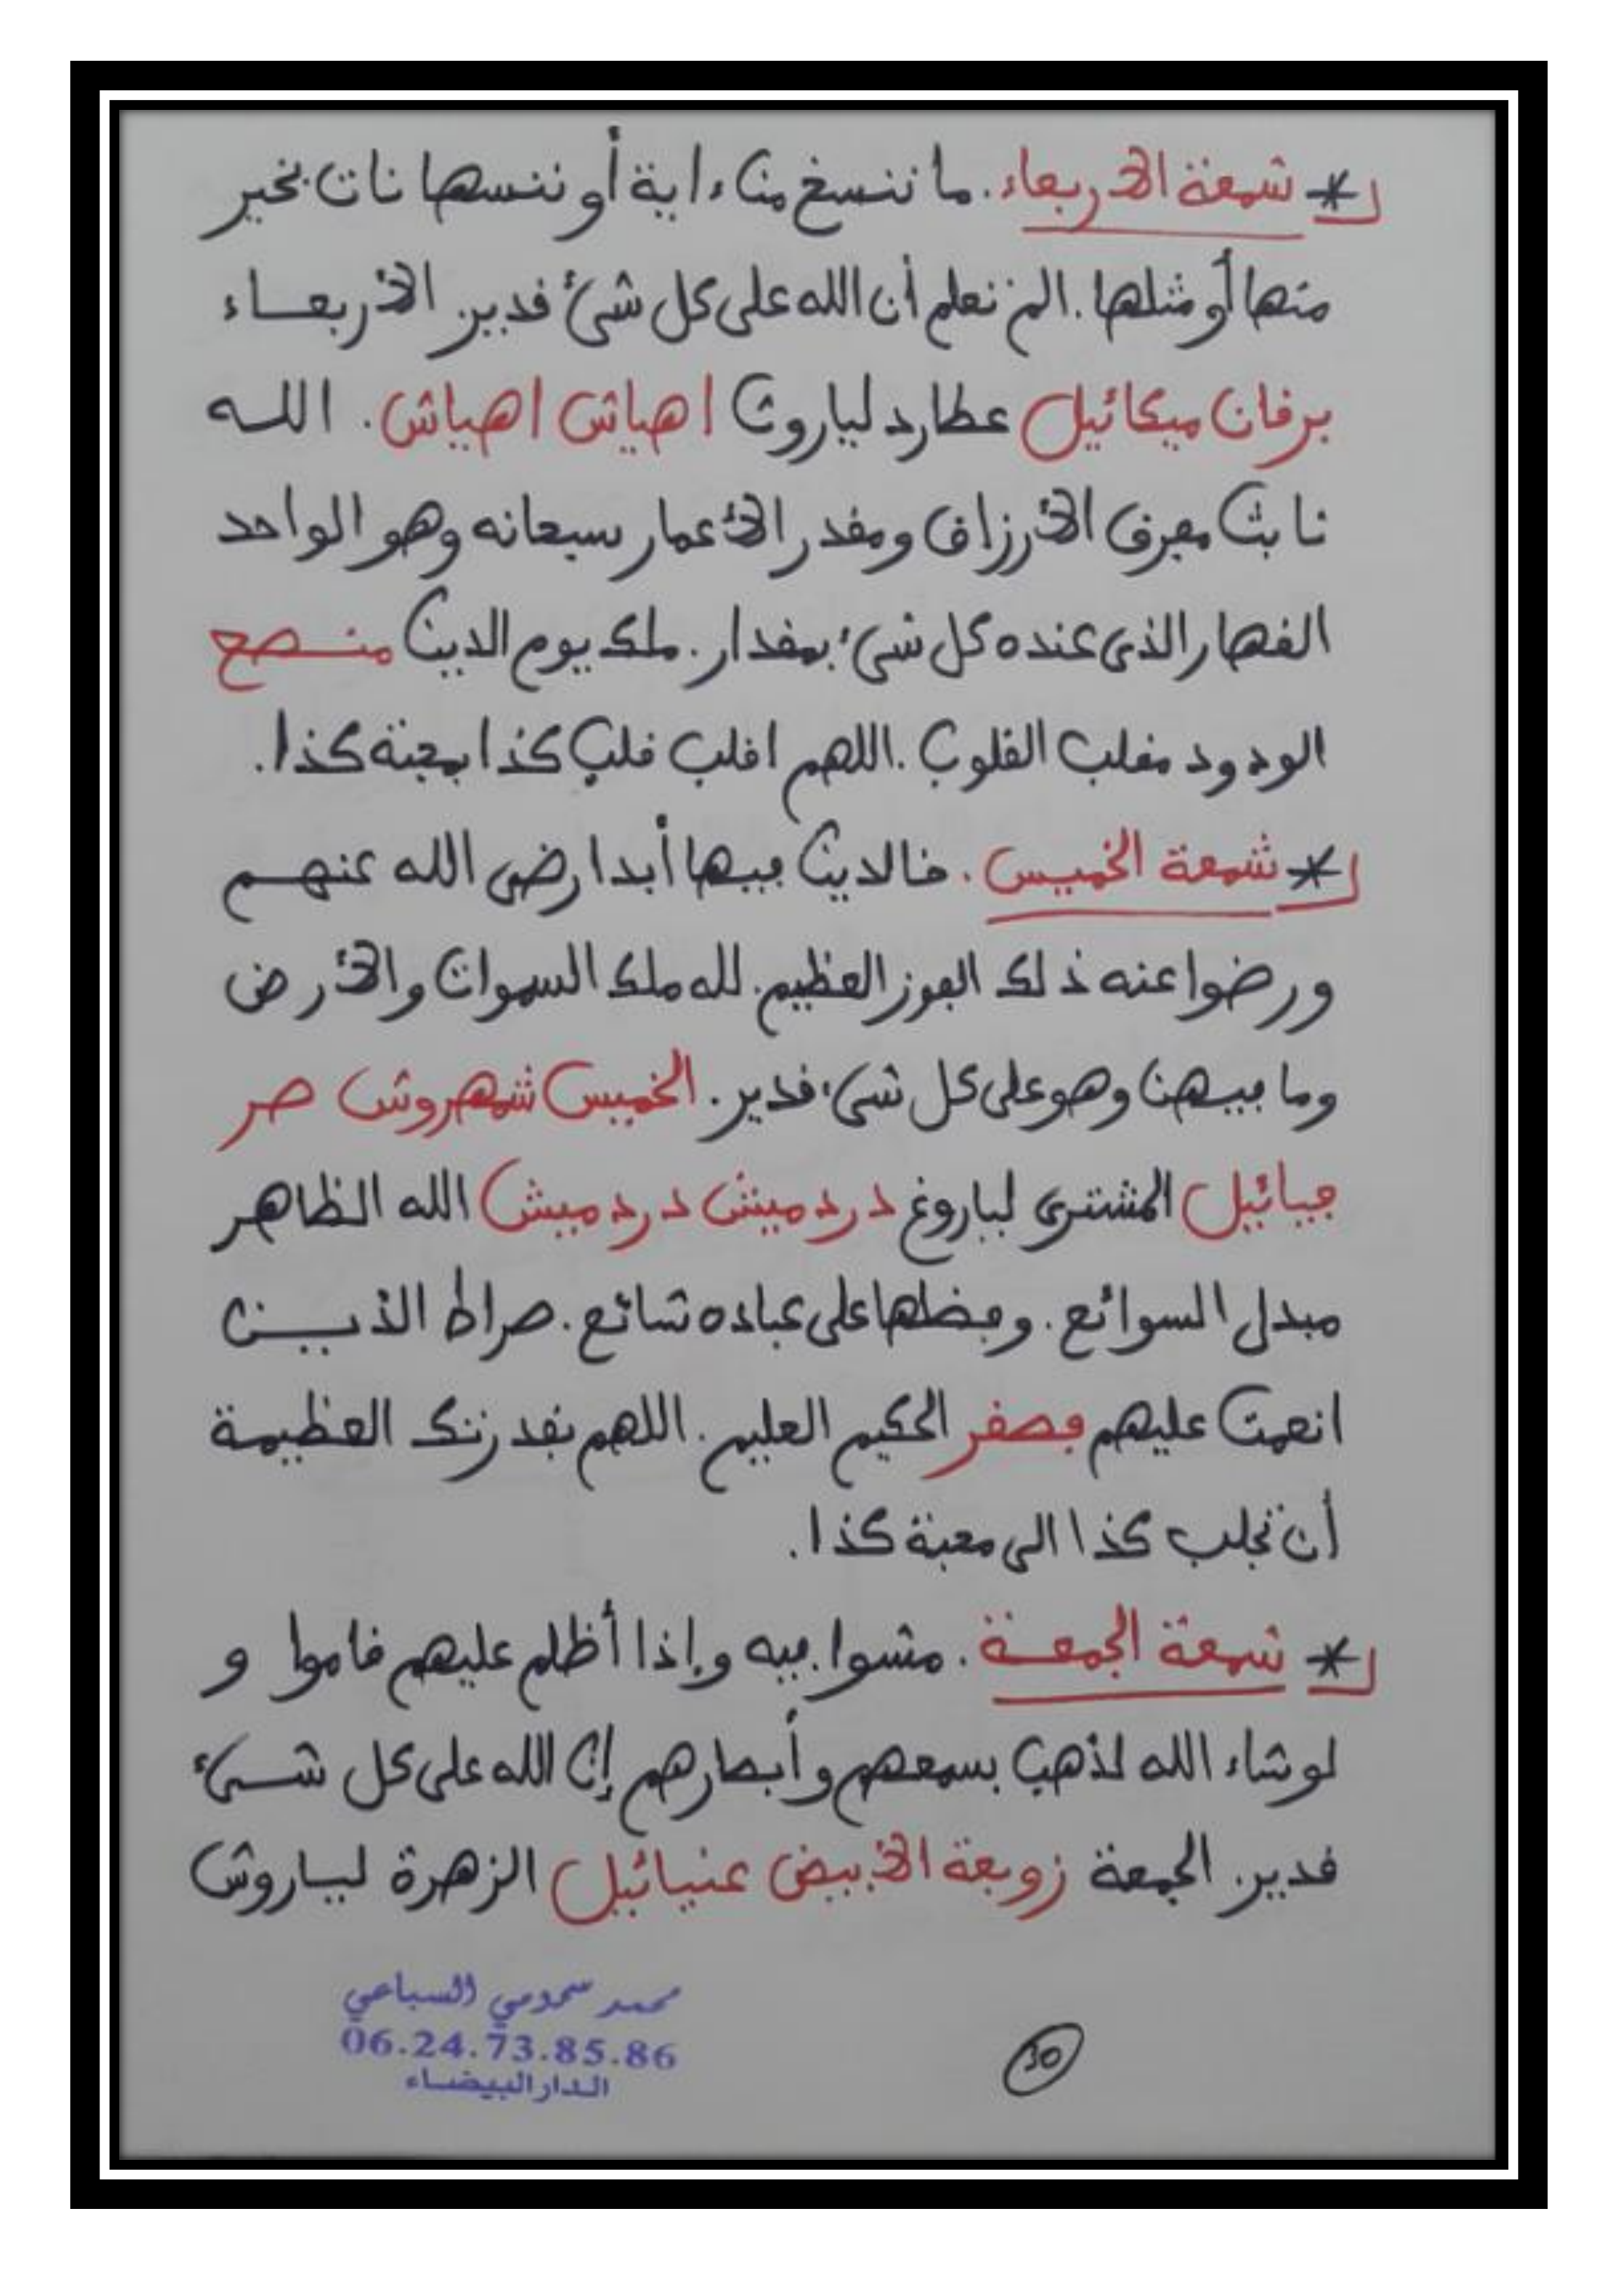 * شمعة الأربعاء. ما ننسخ من ءاية أو ننسها نات بخير
منها أو مثلها. الم تعلم أن الله على كل شئ قدير. الأربعاء
برقان ميكائيل عطارد لياروث اهياش اهياش. الله
ثابت مصرف الأرزاق ومقدر الأعمار سبحانه وهو الواحد
القهار الذي عنده كل شيء بمقدار. ملك يوم الدين منصع
الودود مقلب القلوب. اللهم اقلب قلب كذا بمحبة كذا.
* شمعة الخميس. خالدين فيها أبدا رضى الله عنهم
ورضوا عنه ذلك الفوز العظيم. لله ملك السموات والأرض
وما فيهن وهو على كل شيء قدير. الخميس شمهروش صر
فيائيل المشترى لياروغ دردميش دردميش الله الظاهر
مبدل السوائع. وفضلها على عباده شائع. صراط الذين
انعمت عليهم فصقر الحكيم العليم. اللهم بقدرتك العظيمة
أن تجلب كذا الى محبة كذا.
* شمعة الجمعة. مشوا فيه وإذا أظلم عليهم قاموا و
لو شاء الله لذهب بسمعهم وأبصارهم إن الله على كل شيء
قدير. الجمعة زوبعة الأبيض عنيائيل الزهرة لياروش
محمد سحومي السباعي
06.24.73.85.86
الدار البيضاء
30